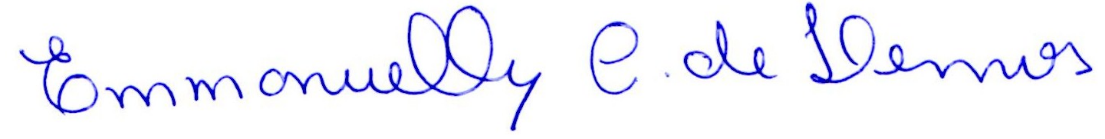 Emmanuelly C. de Lemos